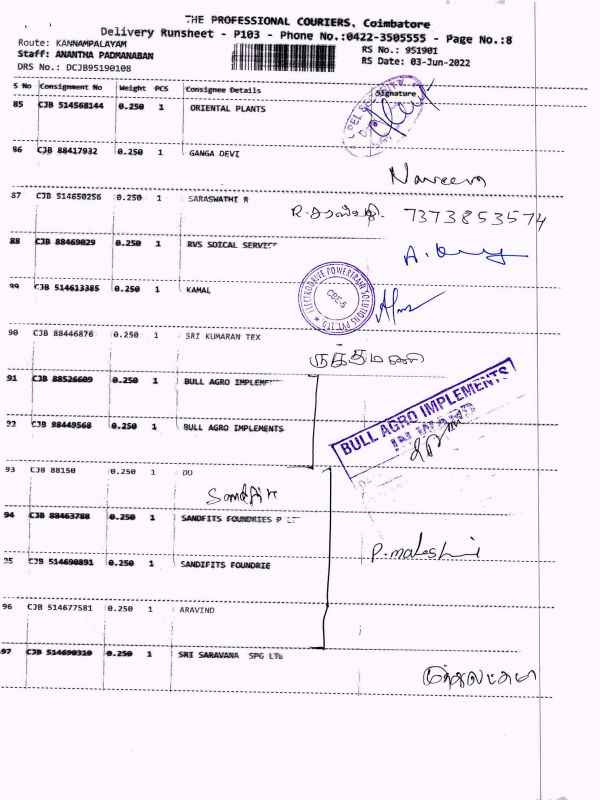 THE PROFESSIONAL COURIERS, Coimbatore
Delivery Runsheet - P103 - Phone No.:0422-3505555 - Page No.:8
Route: KANNAMPALAYAM
RS No.: 951901
Staff: ANANTHA PADMANABAN
RS Date: 03-Jun-2022
DRS No.: DCJB95190108
S No Consignment No Weight PCS Consignee Details Signature
85 CJB 514568144 0.250 1 ORIENTAL PLANTS
86 CJB 88417932 0.250 1 GANGA DEVI
Naveen
87 CJB 514650256 0.250 1 SARASWATHI R
7373853574
88 CJB 88469029 0.250 1 RVS SOICAL SERVICE
A.
89 CJB 514613385 0.250 1 KAMAL
ELECTRODRIVE POWERTRAIN SOLUTIONS PVT. LTD.
CBE-5
90 CJB 88446876 0.250 1 SRI KUMARAN TEX
ருத்திமணி
91 CJB 88526609 0.250 1 BULL AGRO IMPLEMENT
92 CJB 88449568 0.250 1 BULL AGRO IMPLEMENTS
BULL AGRO IMPLEMENTS
INWARD
93 CJB 88150 0.250 1 DO
Sandfit
94 CJB 88463788 0.250 1 SANDFITS FOUNDRIES P LT
P. maheshwari
95 CJB 514690891 0.250 1 SANDIFITS FOUNDRIE
96 CJB 514677581 0.250 1 ARAVIND
97 CJB 514690310 0.250 1 SRI SARAVANA SPG LTD
முத்துலட்சுமி